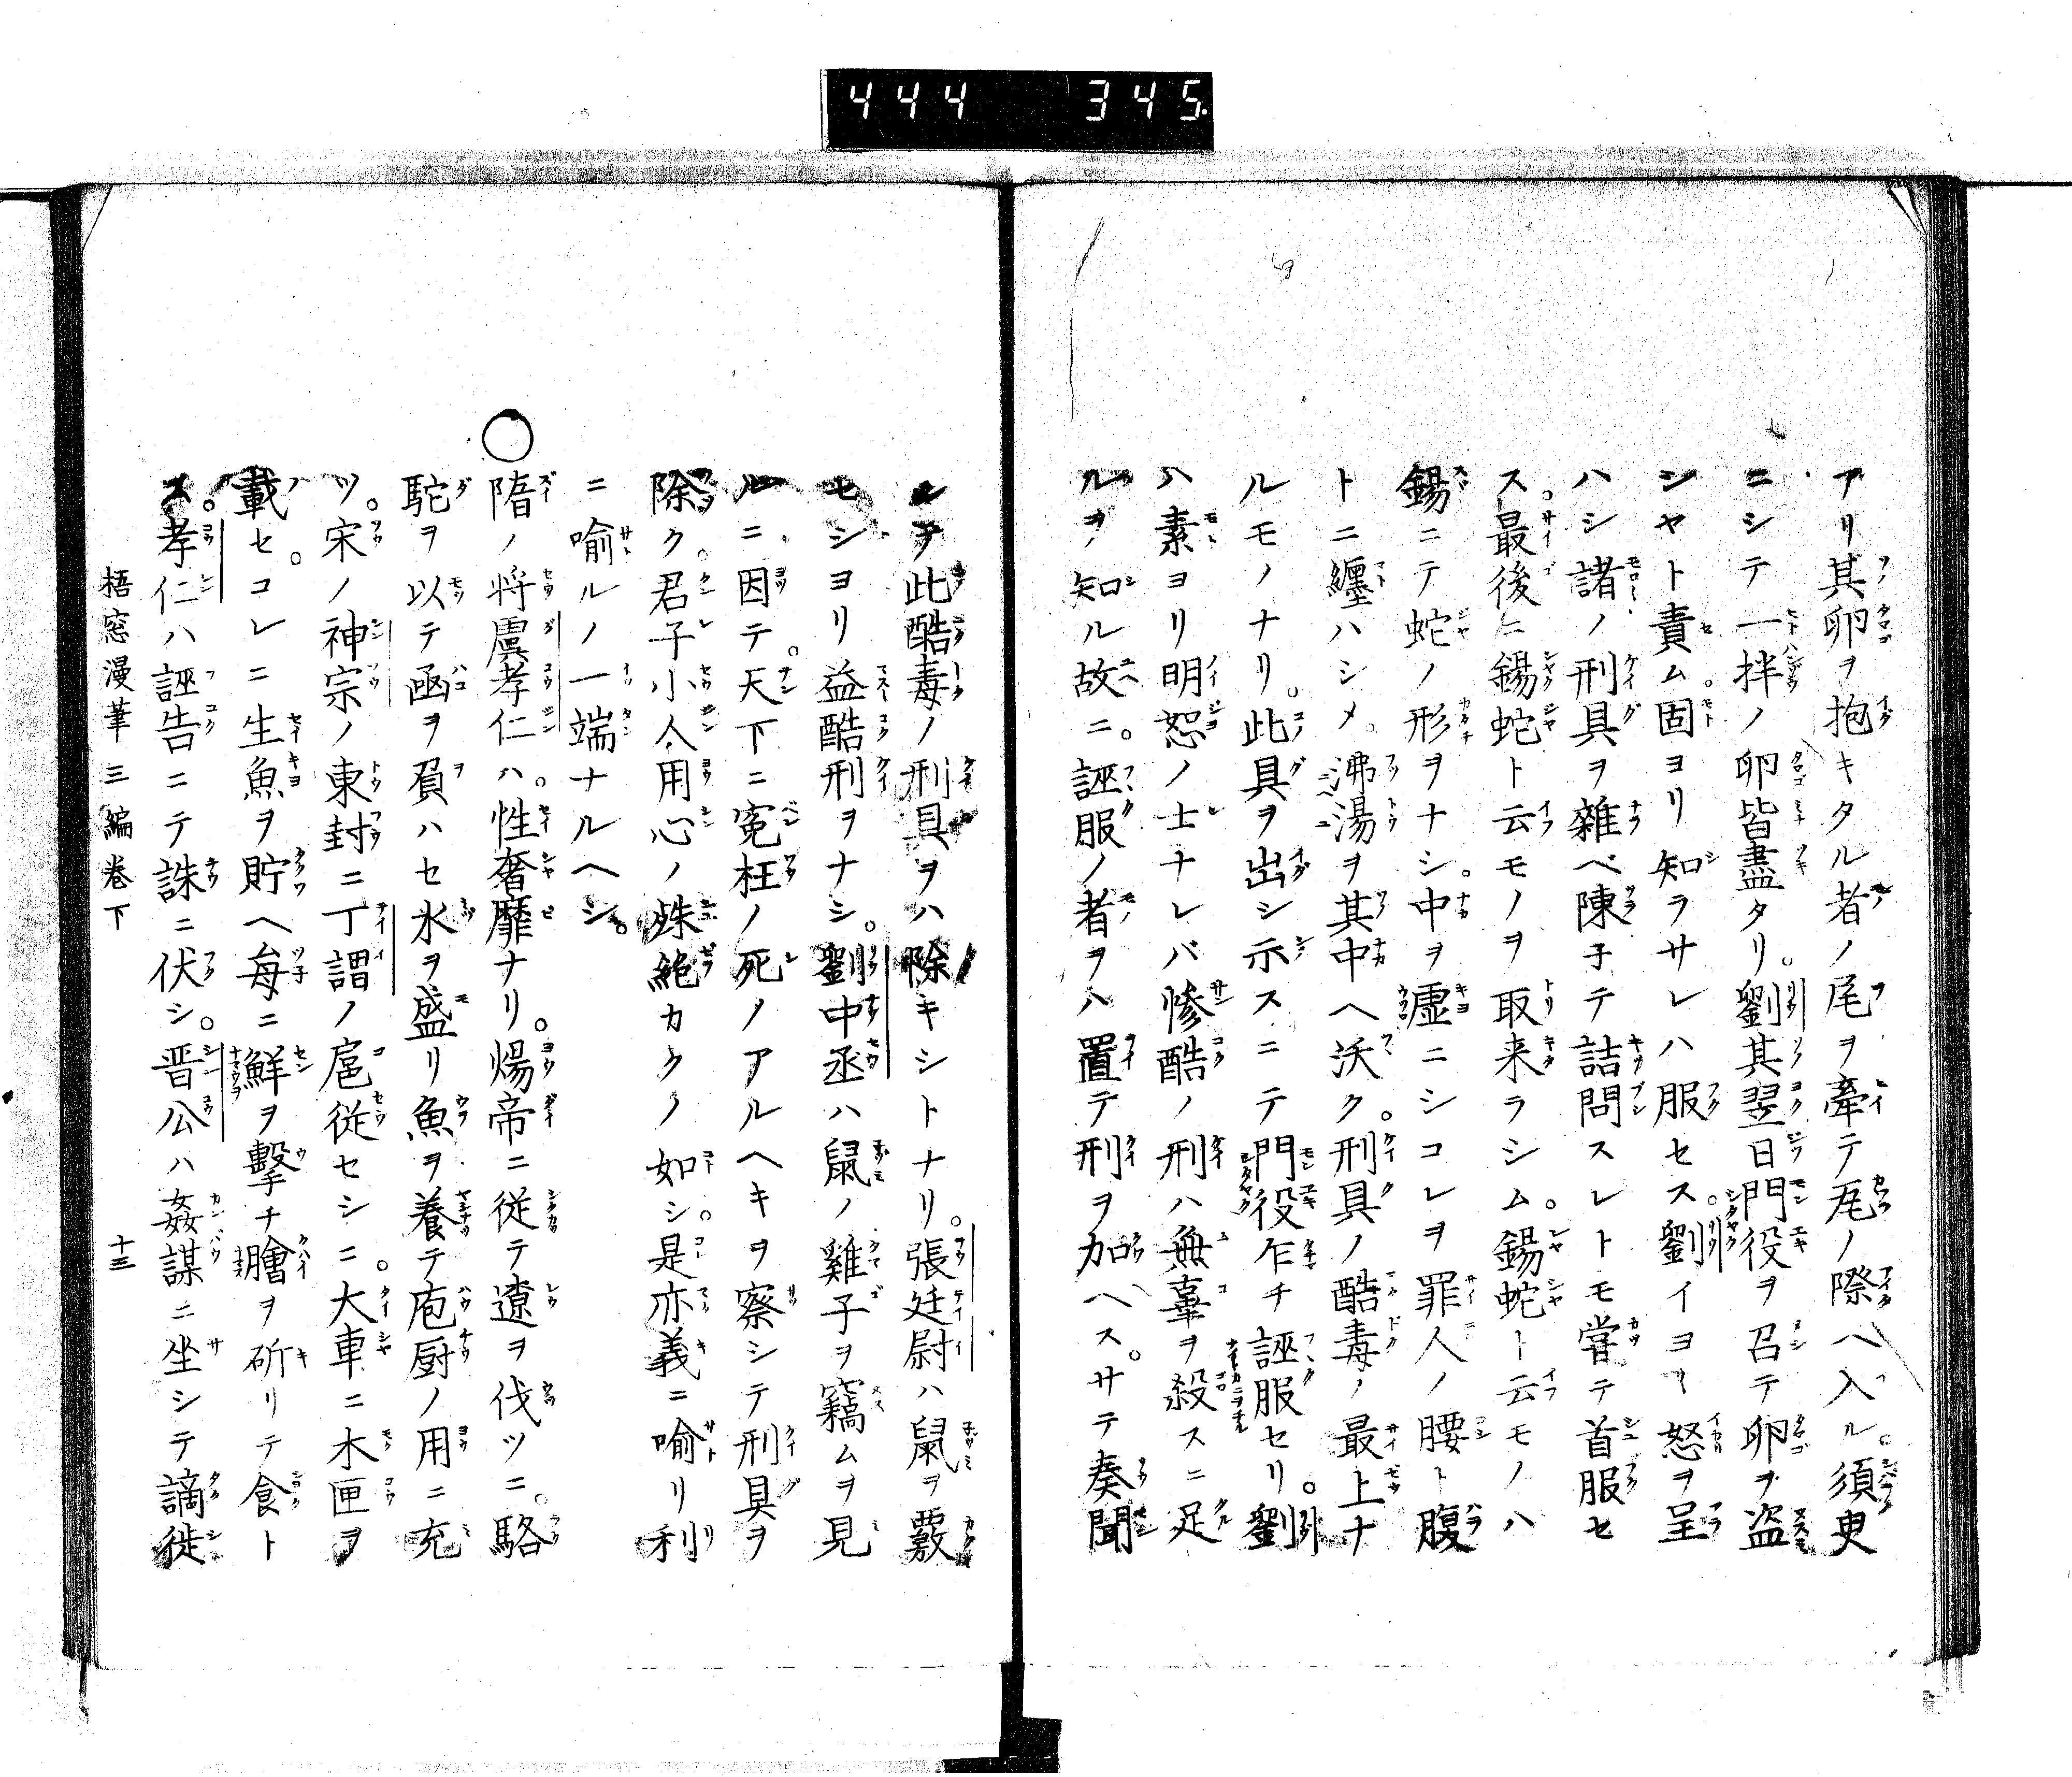 444 345
アリ其卵ヲ抱キタル者ノ尾ヲ牽テ瓦ノ際ヘ入ル。須臾
ニシテ一拌ノ卵皆盡タリ。劉其翌日門役ヲ召テ卵ヲ盗
シヤト責ム。固ヨリ知ラサレハ服セス。劉イヨ〳〵怒ヲ呈
ハシ諸ノ刑具ヲ雜ベ陳子テ詰問スレトモ嘗テ首服セ
ス。最後ニ錫蛇ト云モノヲ取来ラシム。錫蛇ト云モノハ
錫ニテ蛇ノ形ヲナシ。中ヲ虚ニシコレヲ罪人ノ腰ト腹
トニ纒ハシメ。沸湯ヲ其中ヘ沃ク。刑具ノ酷毒ノ最上ナ
ルモノナリ。此具ヲ出シ示スニテ門役乍チ誣服セリ。劉
ハ素ヨリ明恕ノ士ナレバ惨酷ノ刑ハ無辜ヲ殺スニ足
ルヿヲ知ル故ニ。誣服ノ者ヲハ置テ刑ヲ加ヘス。サテ奏聞
シテ此酷毒ノ刑具ヲハ除キシトナリ。張廷尉ハ鼠ヲ覈
セシヨリ益酷刑ヲナシ。劉中丞ハ鼠ノ雞子ヲ竊ムヲ見
ルニ因テ。天下ニ冤枉ノ死ノアルヘキヲ察シテ刑具ヲ
除ク。君子小人用心ノ殊絶カクノ如シ。是亦義ニ喩リ利
ニ喩ルノ一端ナルヘシ。
○隋ノ将虞孝仁ハ。性奢靡ナリ。煬帝ニ従テ遼ヲ伐ツニ。駱
駝ヲ以テ凾ヲ負ハセ水ヲ盛リ魚ヲ養テ庖厨ノ用ニ充
ツ。宋ノ神宗ノ東封ニ丁謂ノ扈従セシニ。大車ニ木匣ヲ
載セ。コレニ生魚ヲ貯ヘ毎ニ鮮ヲ撃チ膾ヲ斫リテ食ト
ス。孝仁ハ誣告ニテ誅ニ伏シ。晋公ハ姦謀ニ坐シテ謫徙
梧窓漫筆三編巻下 十三